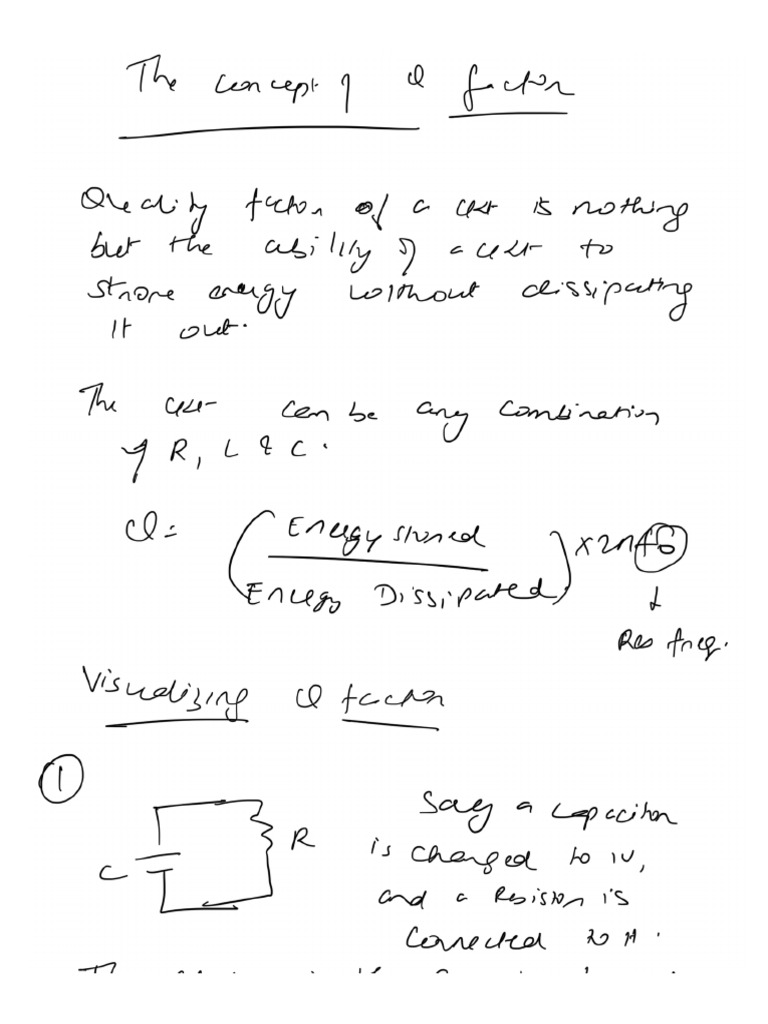 The concept of Q factor
Quality factor of a ckt is nothing
but the ability of a ckt to
store energy without dissipating
it out.
The ckt can be any combination
of R, L & C.
Q = (Energy stored / Energy Dissipated) x 2πf0
↓
Res freq.
Visualizing Q factor
①
C
R
Say a capacitor
is charged to 1V,
and a Resistor is
connected to it.